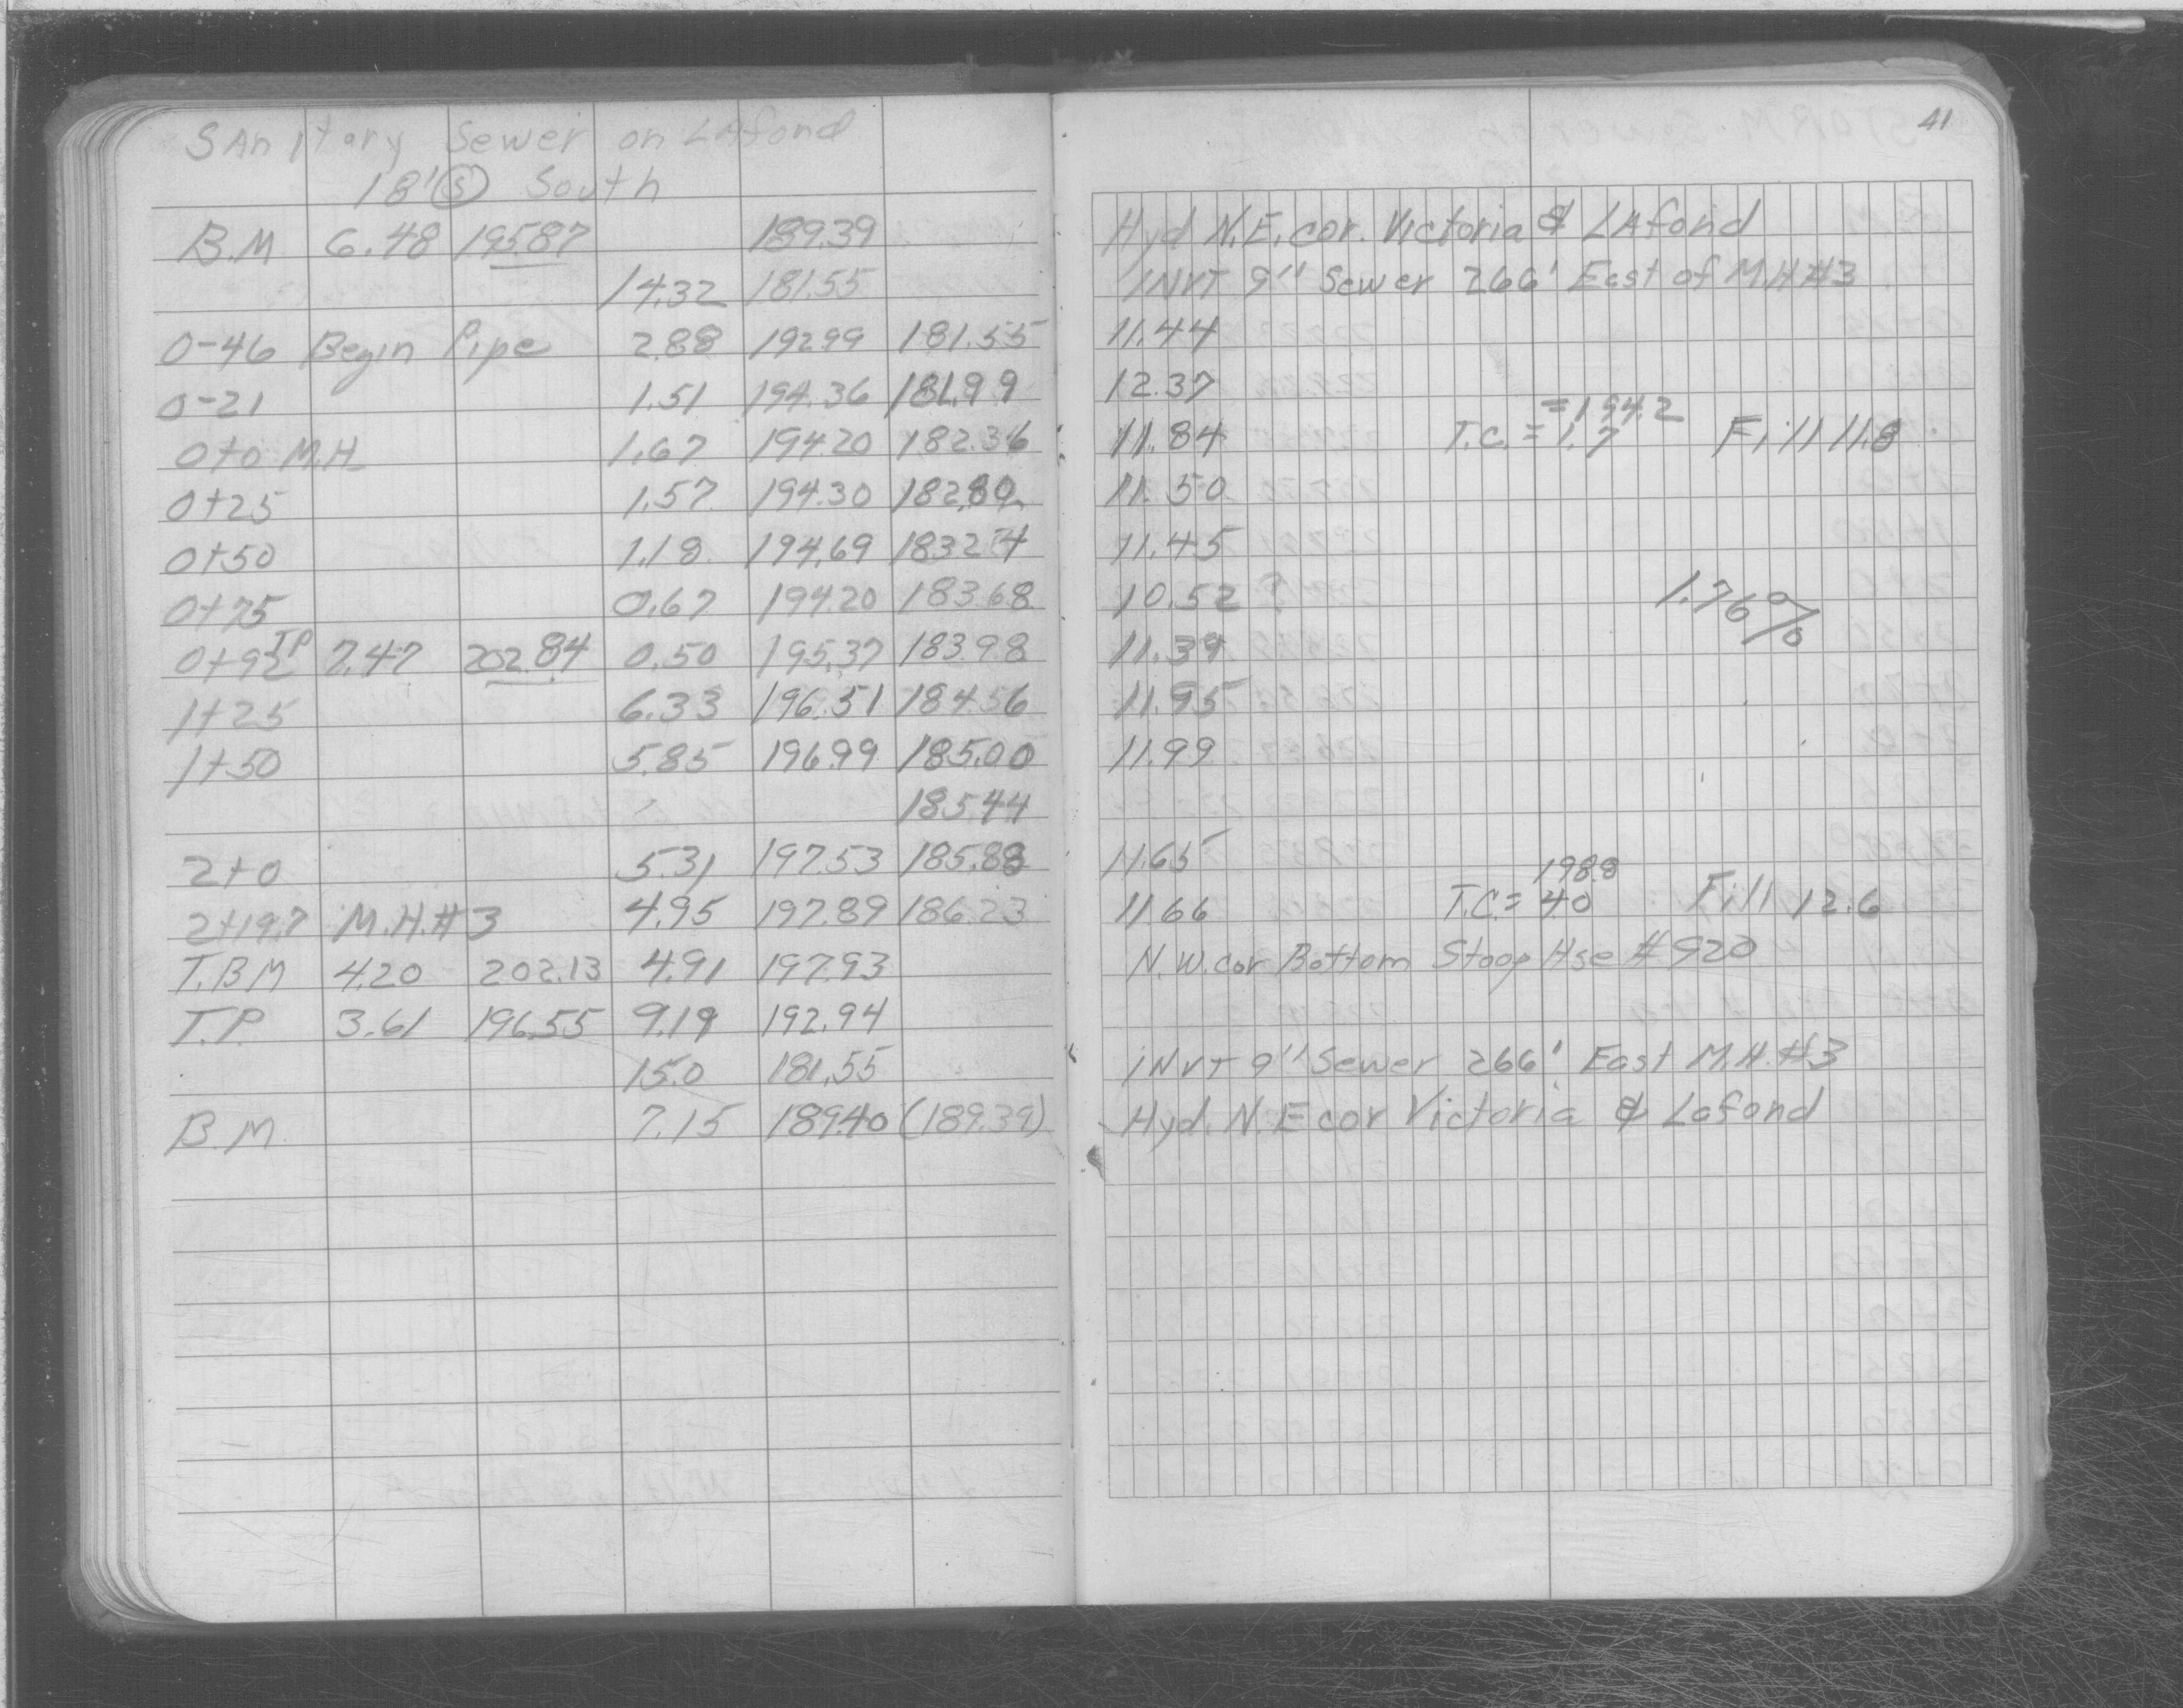 SAnitary Sewer on LAfond
18' (S) South
B.M 6.48 195.87 189.39
14.32 181.55
0-46 Begin Pipe 2.88 192.99 181.55
0-21 1.51 194.36 181.99
0+0 M.H. 1.67 194.20 182.36
0+25 1.57 194.30 182.80
0+50 1.18 194.69 183.24
0+75 0.67 194.20 183.68
0+92 TP 7.47 202.84 0.50 195.37 183.98
1+25 6.33 196.51 184.56
1+50 5.85 196.99 185.00
185.44
2+0 5.31 197.53 185.88
2+19.7 M.H.#3 4.95 197.89 186.23
T.B.M 4.20 202.13 4.91 197.93
T.P. 3.61 196.55 9.19 192.94
15.0 181.55
B.M. 7.15 189.40 (189.39)
41
Hyd N.E. cor. Victoria & LAfond
INVT 9" Sewer 266' East of M.H#3
11.44
12.37
=194.2
11.84 T.C. = 1.7 Fill 11.8
11.50
11.45
10.52 ?
1.76%
11.39
11.95
11.99
11.65
198.8
11.66 T.C. = 4.0 Fill 12.6
N.W. cor Bottom Stoop Hse #920
iNVT 9" Sewer 266' East M.H.#3
Hyd. N.E cor Victoria & Lafond